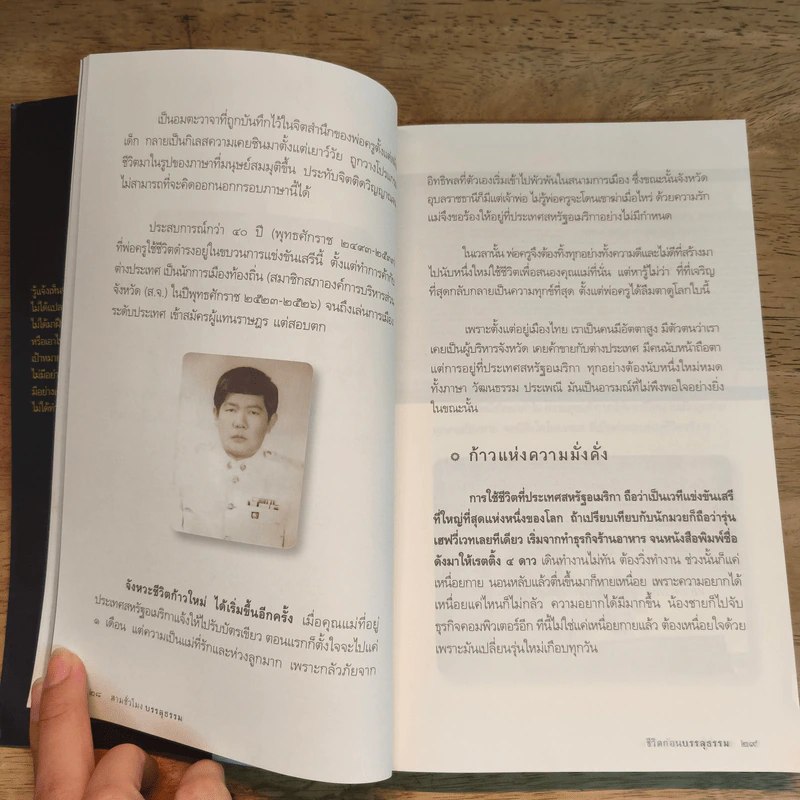 เป็นอมตะวาจาที่ถูกบันทึกไว้ในจิตสำนึกของพ่อครูตั้งแต่
เด็ก กลายเป็นกิเลสความเคยชินมาตั้งแต่เยาว์วัย ถูกวางโปรแกรม
ชีวิตมาในรูปของภาษาที่มนุษย์สมมุติขึ้น ประทับจิตติดวิญญาณ
ไม่สามารถที่จะคิดออกนอกกรอบภาษานี้ได้
ประสบการณ์กว่า ๔๐ ปี (พุทธศักราช ๒๔๙๓-๒๕๓
ที่พ่อครูใช้ชีวิตดำรงอยู่ในขบวนการแข่งขันเสรีนี้ ตั้งแต่ทำการค้ากับ
ต่างประเทศ เป็นนักการเมืองท้องถิ่น (สมาชิกสภาองค์การบริหารส่วน
จังหวัด (ส.จ.) ในปีพุทธศักราช ๒๕๒๓-๒๕๒๖) จนถึงเล่นการเมือง
ระดับประเทศ เข้าสมัครผู้แทนราษฎร แต่สอบตก
จังหวะชีวิตก้าวใหม่ ได้เริ่มขึ้นอีกครั้ง เมื่อคุณแม่ที่อยู่
ประเทศสหรัฐอเมริกาแจ้งให้ไปรับบัตรเขียว ตอนแรกก็ตั้งใจจะไปแค่
๑ เดือน แต่ความเป็นแม่ที่รักและห่วงลูกมาก เพราะกลัวภัยจาก
๒๘ สามชั่วโมง บรรลุธรรม
อิทธิพลที่ตัวเองเริ่มเข้าไปพัวพันในสนามการเมือง ซึ่งขณะนั้นจังหวัด
อุบลราชธานีก็มีแต่เจ้าพ่อ ไม่รู้พ่อครูจะโดนเขาฆ่าเมื่อไหร่ ด้วยความรัก
แม่จึงขอร้องให้อยู่ที่ประเทศสหรัฐอเมริกาอย่างไม่มีกำหนด
ในเวลานั้น พ่อครูจึงต้องทิ้งทุกอย่างทั้งความดีและไม่ดีที่สร้างมา
ไปนับหนึ่งใหม่ใช้ชีวิตเพื่อสนองคุณแม่ที่นั่น แต่หารู้ไม่ว่า ที่ที่เจริญ
ที่สุดกลับกลายเป็นความทุกข์ที่สุด ตั้งแต่พ่อครูได้ลืมตาดูโลกใบนี้
เพราะตั้งแต่อยู่เมืองไทย เราเป็นคนมีอัตตาสูง มีตัวตนว่าเรา
เคยเป็นผู้บริหารจังหวัด เคยค้าขายกับต่างประเทศ มีคนนับหน้าถือตา
แต่การอยู่ที่ประเทศสหรัฐอเมริกา ทุกอย่างต้องนับหนึ่งใหม่หมด
ทั้งภาษา วัฒนธรรม ประเพณี มันเป็นอารมณ์ที่ไม่พึงพอใจอย่างยิ่ง
ในขณะนั้น
ก้าวแห่งความมั่งคั่ง
การใช้ชีวิตที่ประเทศสหรัฐอเมริกา ถือว่าเป็นเวทีแข่งขันเสรี
ที่ใหญ่ที่สุดแห่งหนึ่งของโลก ถ้าเปรียบเทียบกับนักมวยก็ถือว่ารุ่น
เฮฟวี่เวทเลยทีเดียว เริ่มจากทำธุรกิจร้านอาหาร จนหนังสือพิมพ์ชื่อ
ดังมาให้เรตติ้ง ๔ ดาว เดินทำงานไม่ทัน ต้องวิ่งทำงาน ช่วงนั้นก็แค่
เหนื่อยกาย นอนหลับแล้วตื่นขึ้นมาก็หายเหนื่อย เพราะความอยากได้
เหนื่อยแค่ไหนก็ไม่กลัว ความอยากได้มีมากขึ้น น้องชายก็ไปจับ
ธุรกิจคอมพิวเตอร์อีก ทีนี้ไม่ใช่แค่เหนื่อยกายแล้ว ต้องเหนื่อยใจด้วย
เพราะมันเปลี่ยนรุ่นใหม่เกือบทุกวัน
ชีวิตก่อนบรรลุธรรม ๒๙